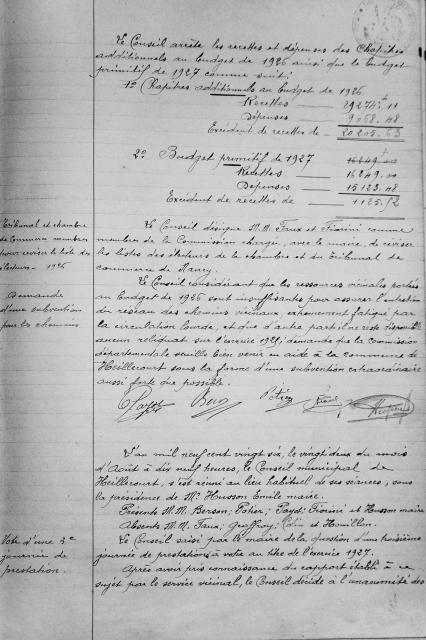 Le Conseil arrête les recettes et dépenses des Chapitres
additionnels au budget de 1926 ainsi que le budget
primitif de 1927 comme suit:
1º Chapitres additionnels au budget de 1926
Recettes — 29274f 11
Dépenses — 9068.48
Excédent de recettes de — 20205.63
2º Budget primitif de 1927
Recettes — 16249.00
Dépenses — 15123.48
Excédent de recettes de — 1125.52
Tribunal et chambre
de Commerce membres
pour reviser la liste des
électeurs - 1926
Le Conseil désigne M.M. Faux et Fiorini comme
membres de la Commission chargée, avec le maire, de reviser
les listes des électeurs de la chambre et du Tribunal de
commerce de Nancy.
Demande
d'une subvention
pour les chemins
Le Conseil considérant que les ressources vicinales portées
au budget de 1926 sont insuffisantes pour assurer l'entretien
du réseau des chemins vicinaux, fatigué par
la circulation lourde, et que d'autre part il ne reste disponible
aucun reliquat sur l'exercice 1925, demande que la Commission
départementale veuille bien venir en aide à la commune de
Heillecourt sous la forme d'une subvention extraordinaire
aussi forte que possible.
L'an mil neuf cent vingt six, le vingt deux du mois
d'Août à dix neuf heures, le Conseil municipal de
Heillecourt, s'est réuni au lieu habituel de ses séances, sous
la présidence de Mr Husson Emile maire.
Présents M.M. Berson; Fiorini et Husson maire
Absents M.M. Faux; Geoffroy; et Houillon.
Vote d'une 3e
journée de
prestation.
Le Conseil saisi par le maire de la question d'une troisième
journée de prestations à voter au titre de l'exercice 1927.
Après avoir pris connaissance du rapport établi à ce
sujet par le service vicinal, le Conseil décide à l'unanimité des